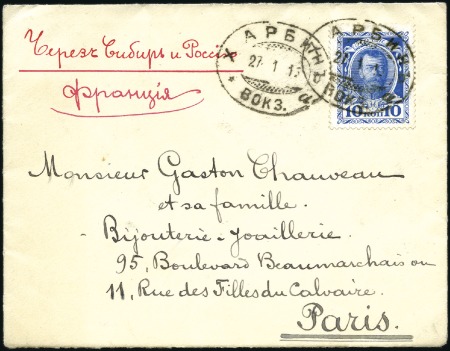 Черезъ Сибирь и Россію
Франція
ХАРБИНЪ
27 1 1
ВОКЗ.
ХАРБИНЪ
ВОКЗ.
10 КОП 10
Monsieur Gaston Chauveau
et sa famille.
Bijouterie-Joaillerie.
95, Boulevard Beaumarchais ou
11, Rue des Filles du Calvaire.
Paris.